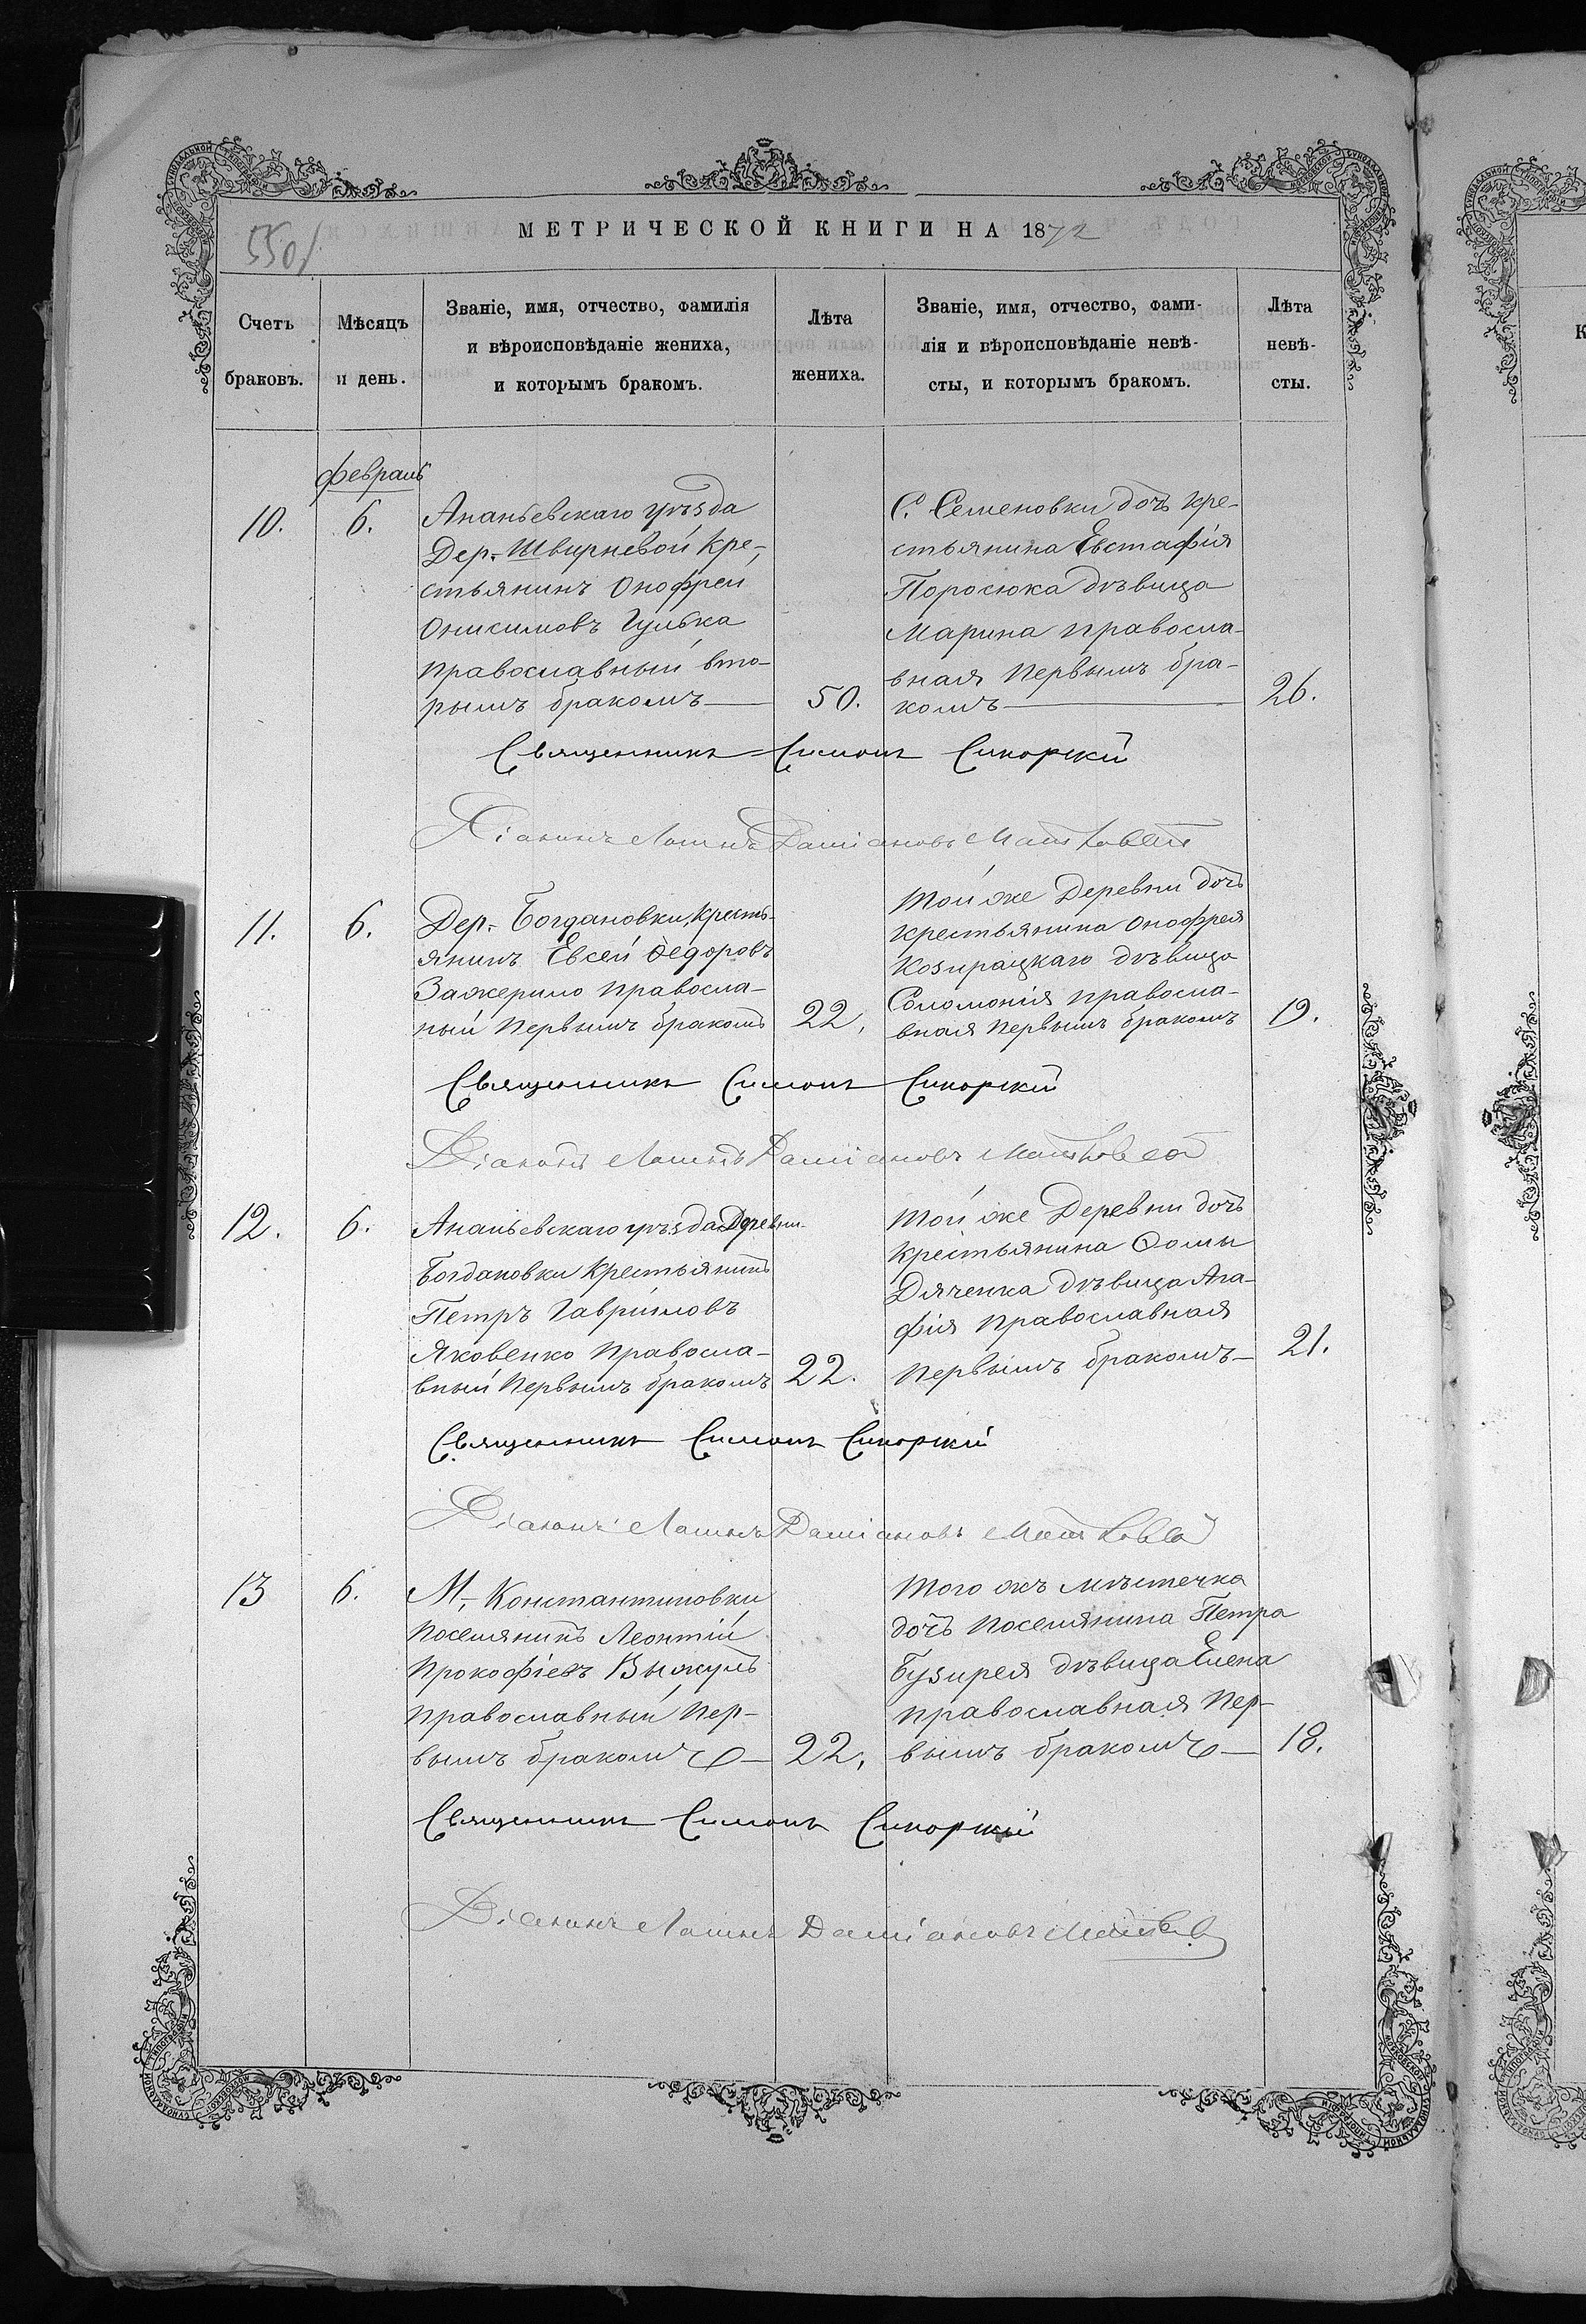 МЕТРИЧЕСКОЙ КНИГИ НА 1872
Счетъ браковъ.
Мѣсяцъ и день.
Званіе, имя, отчество, фамилія
и вѣроисповѣданіе жениха,
и которымъ бракомъ.
Лѣта
жениха.
Званіе, имя, отчество, фами-
лія и вѣроисповѣданіе невѣ-
сты, и которымъ бракомъ.
Лѣта
невѣ-
сты.
февраль
10.
6.
Ананьевскаго уѣзда
Дер. Швирневой Кре-
стьянинъ Онофрей
Онисимовъ Гулька
православный вто-
рымъ бракомъ
50.
С. Семеновки дочь кре-
стьянина Евстафія
Поросюка дѣвица
Марина правосла-
вная первымъ бра-
комъ
26.
Священникъ Симонъ Сикорскій
Діаконъ Даміановъ
11.
6.
Дер. Богдановки, кресть-
янинъ Евсей Ѳедоровъ
Зажерило правосла-
ный первымъ бракомъ
22.
Той же Деревни дочь
крестьянина Онофрея
Козирацкаго дѣвица
Соломонія правосла-
вная первымъ бракомъ
19.
Священникъ Симонъ Сикорскій
Діаконъ Даміановъ
12.
6.
Ананьевскаго уѣзда Деревни
Богдановки Крестьянинъ
Петръ Гавриловъ
Яковенко Правосла-
вный первымъ бракомъ
22.
Той же Деревни дочь
Крестьянина Ѳомы
Дяченка дѣвица Ага-
фія православная
первымъ бракомъ
21.
Священникъ Симонъ Сикорскій
Діаконъ Даміановъ
13
6.
М. Константиновки
поселянинъ Леонтій
Прокофіевъ Выжулъ
православный пер-
вымъ бракомъ
22.
Того жъ мѣстечка
дочь поселянина Петра
Бузирея дѣвица Елена
православная пер-
вымъ бракомъ
18.
Священникъ Симонъ Сикорскій
Діаконъ Даміановъ